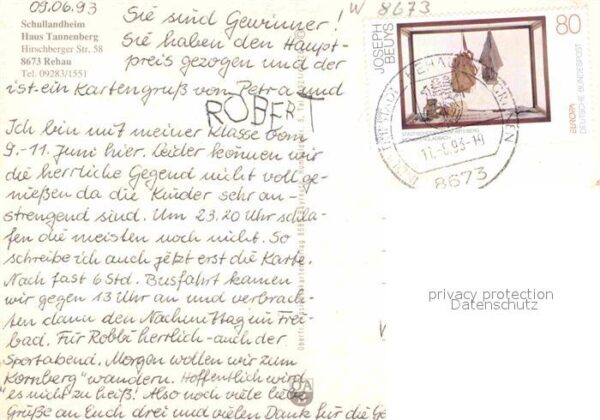 09.06.93
Schullandheim
Haus Tannenberg
Hirschberger Str. 58
8673 Rehau
Tel. 09283/1551
Sie sind Gewinner!
Sie haben den Haupt-
preis gezogen und der
ist ein Kartengruß von Petra und
ROBERT
Ich bin mit meiner Klasse vom
9.-11. Juni hier. Leider können wir
die herrliche Gegend nicht voll ge-
nießen da die Kinder sehr an-
strengend sind. Um 23.20 Uhr schla-
fen die meisten noch nicht. So
schreibe ich auch jetzt erst die Karte.
Nach fast 6 Std. Busfahrt kamen
wir gegen 13 Uhr an und verbrach-
ten dann den Nachmittag im Frei-
bad. Für Robbi herrlich - auch der
Sportabend. Morgen wollen wir zum
"Kornberg" wandern. Hoffentlich wird
es nicht zu heiß! Also noch viele liebe
Grüße an Euch drei und vielen Dank für die Ge
W 8673
JOSEPH
BEUYS
80
EUROPA
DEUTSCHE BUNDESPOST
REHAU
8673
privacy protection
Datenschutz